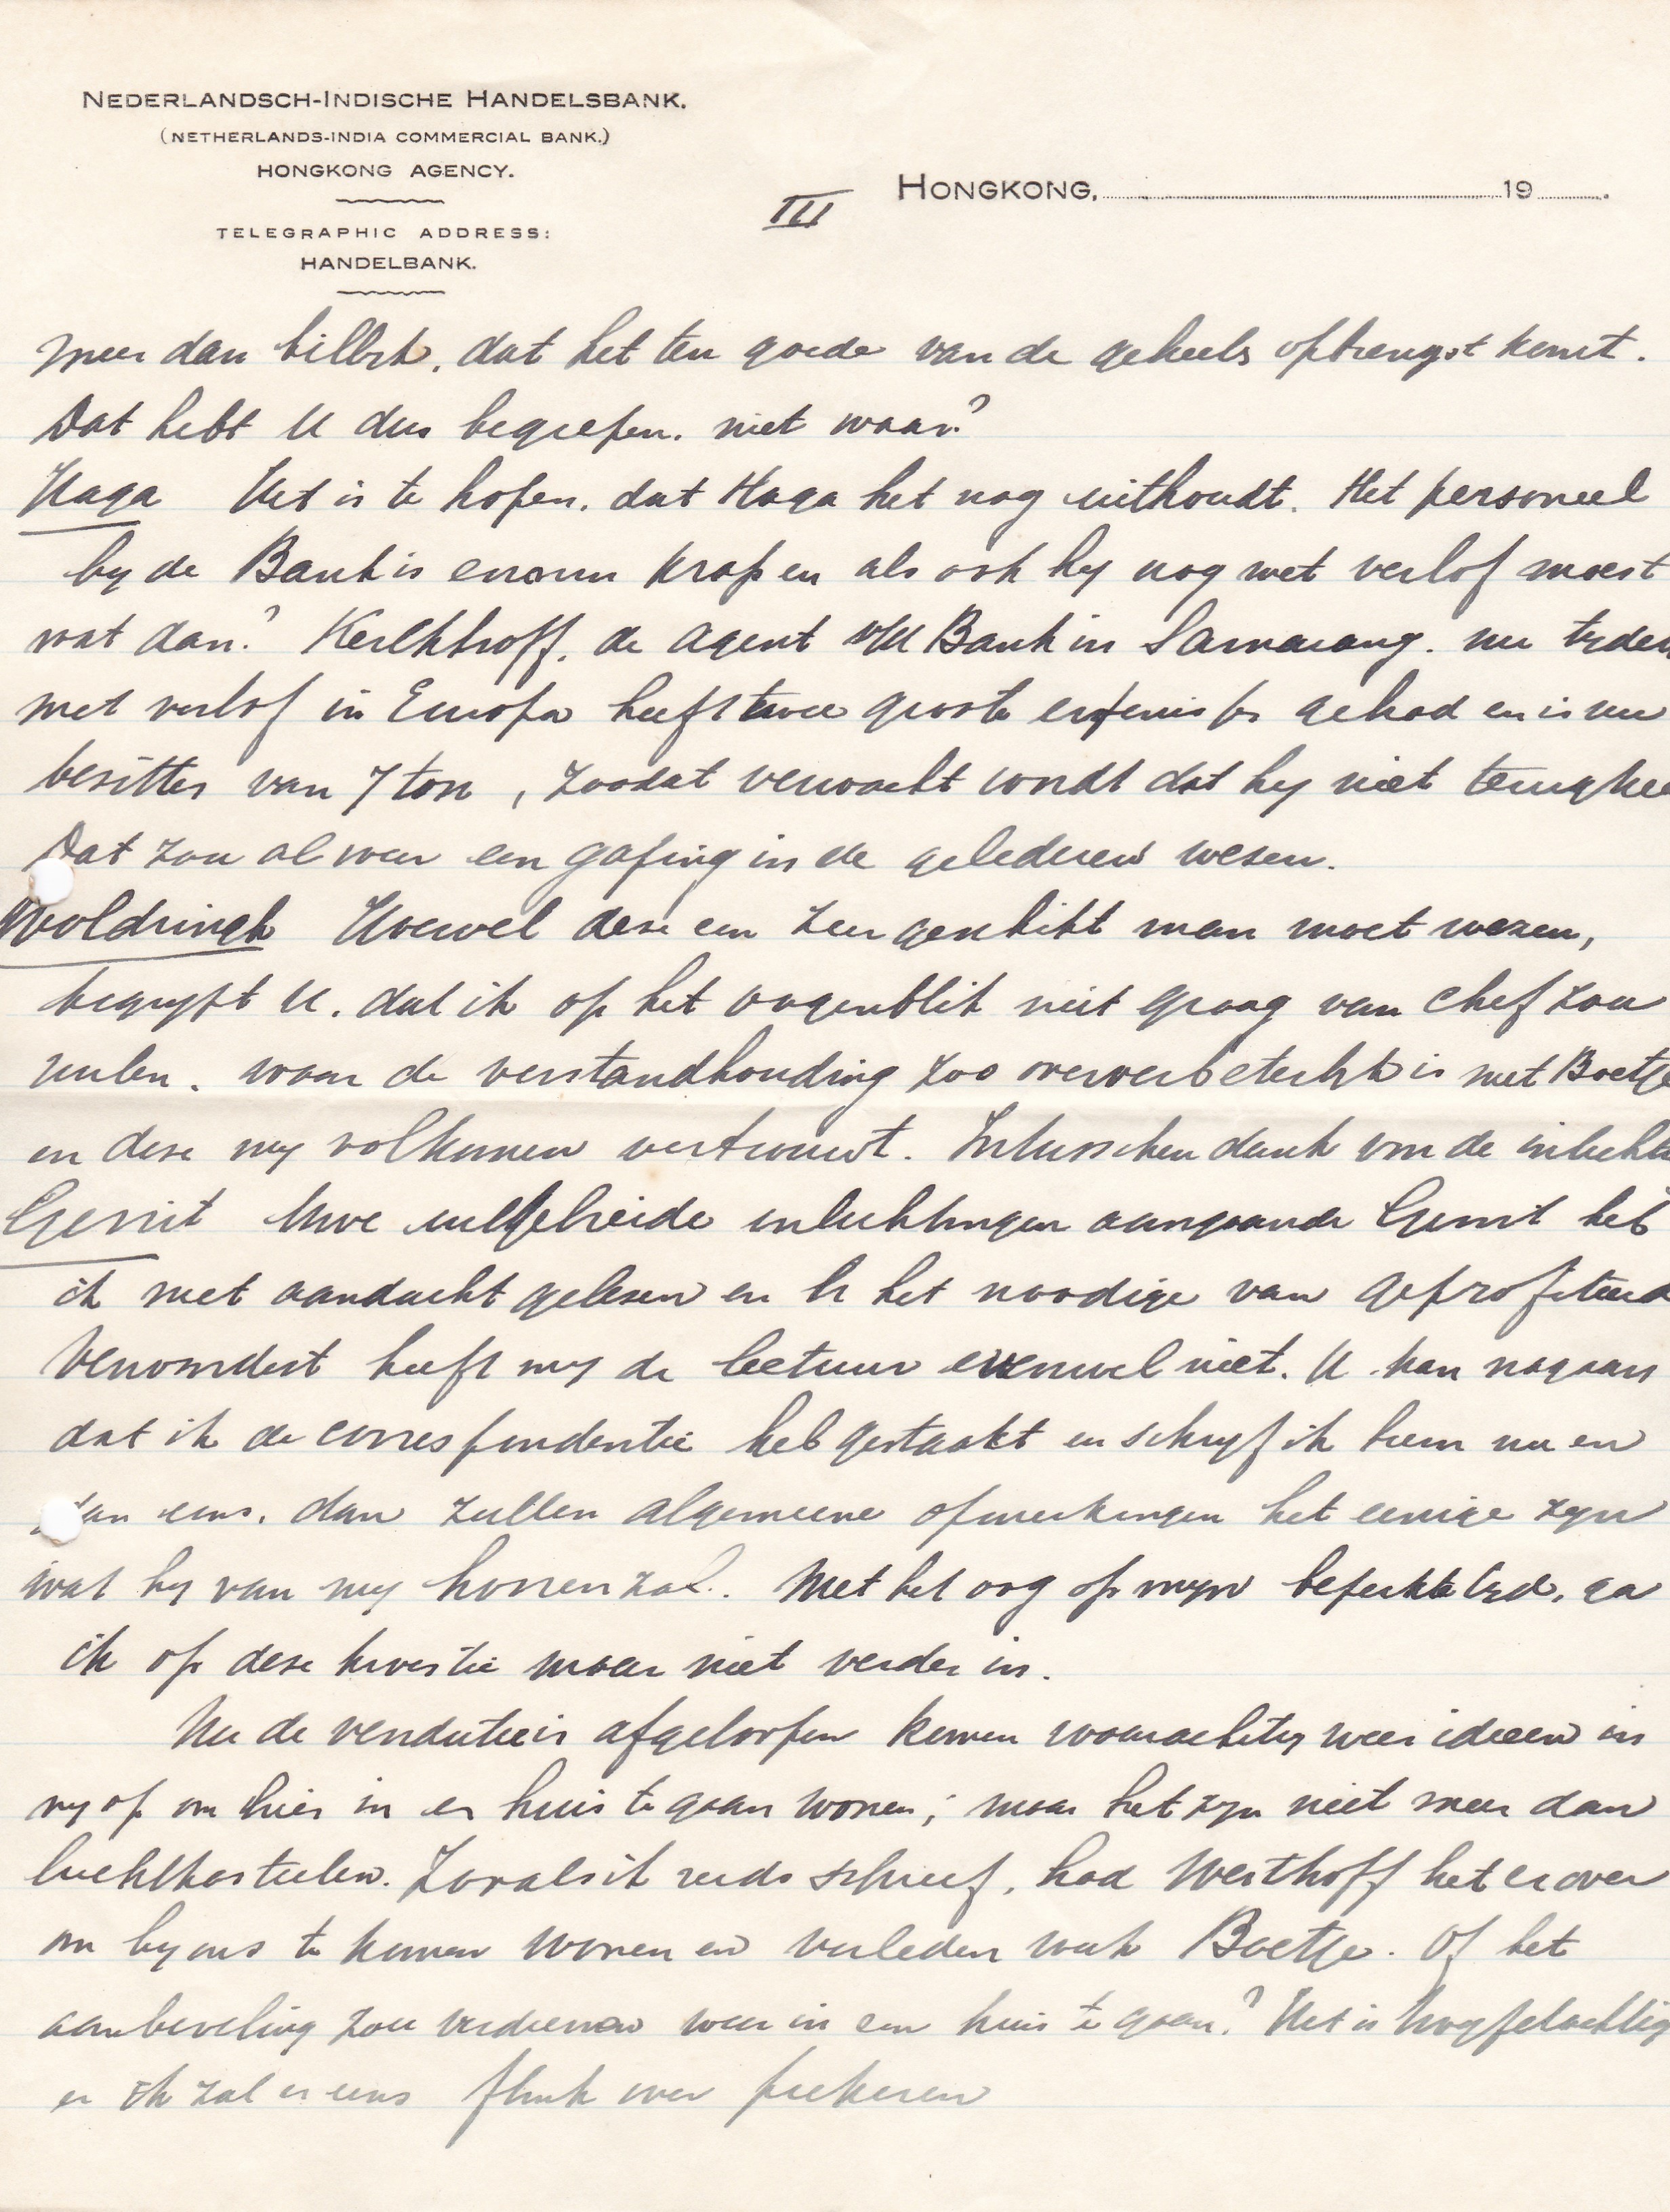 NEDERLANDSCH-INDISCHE HANDELSBANK.
(NETHERLANDS-INDIA COMMERCIAL BANK.)
HONGKONG AGENCY.
TELEGRAPHIC ADDRESS:
HANDELBANK.
III
HONGKONG, 19 .
meer dan billijk, dat het ten goede van de geheele opbrengst komt.
Dat hebt U dus begrepen, niet waar?
Haga Het is te hopen, dat Haga het nog uithoudt. Het personeel
by de Bank is enorm krap en als ook hy nog met verlof moest
wat dan? Kerckhoff, de agent v/d Bank in Samarang, nu tyden
met verlof in Europa heeft twee groote erfenisjes gehad en is nu
bezitter van 7 ton, zoodat verwacht wordt dat hy niet terugkee
Dat zou al weer een gaping in de gelederen wezen.
Woldringh Hoewel deze een zeer geschikt man moet wezen,
begrypt U, dat ik op het oogenblik niet graag van chef zou
ruilen, waar de verstandhouding zoo onverbeterlyk is met Boetje
en deze my volkomen vertrouwt. Intusschen dank voor de inlichtin
Gerrit Uwe uitgebreide inlichtingen aangaande Gerrit heb
ik met aandacht gelezen en er het noodige van geprofiteerd
Verwonderd heeft my de lectuur evenwel niet. U kan nagaan
dat ik de correspondentie heb gestaakt en schryf ik hem nu en
dan eens, dan zullen algemeene opmerkingen het eenige zyn
wat hy van my hooren zal. Met het oog op myn beperkte tyd, ga
ik op deze kwestie maar niet verder in.
Nu de vendutie is afgeloopen komen waarachtig weer ideeen in
my op om hier in een huis te gaan wonen; maar het zyn niet meer dan
luchtkasteelen. Zooals ik reeds schreef, had Westhoff het er over
om by ons te komen wonen en verleden week Boetje. Of het
aanbeveling zou verdienen weer in een huis te gaan? Het is twyfelachtig
en ik zal er eens flink over piekeren